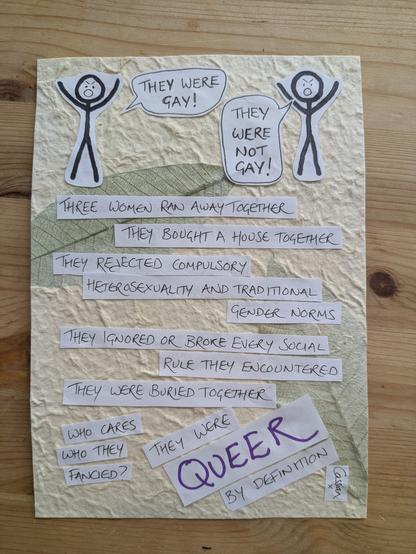 THEY WERE
GAY!
THEY
WERE
NOT
GAY!
THREE WOMEN RAN AWAY TOGETHER
THEY BOUGHT A HOUSE TOGETHER
THEY REJECTED COMPULSORY
HETEROSEXUALITY AND TRADITIONAL
GENDER NORMS
THEY IGNORED OR BROKE EVERY SOCIAL
RULE THEY ENCOUNTERED
THEY WERE BURIED TOGETHER
WHO CARES
WHO THEY
FANCIED?
THEY WERE
QUEER
BY DEFINITION